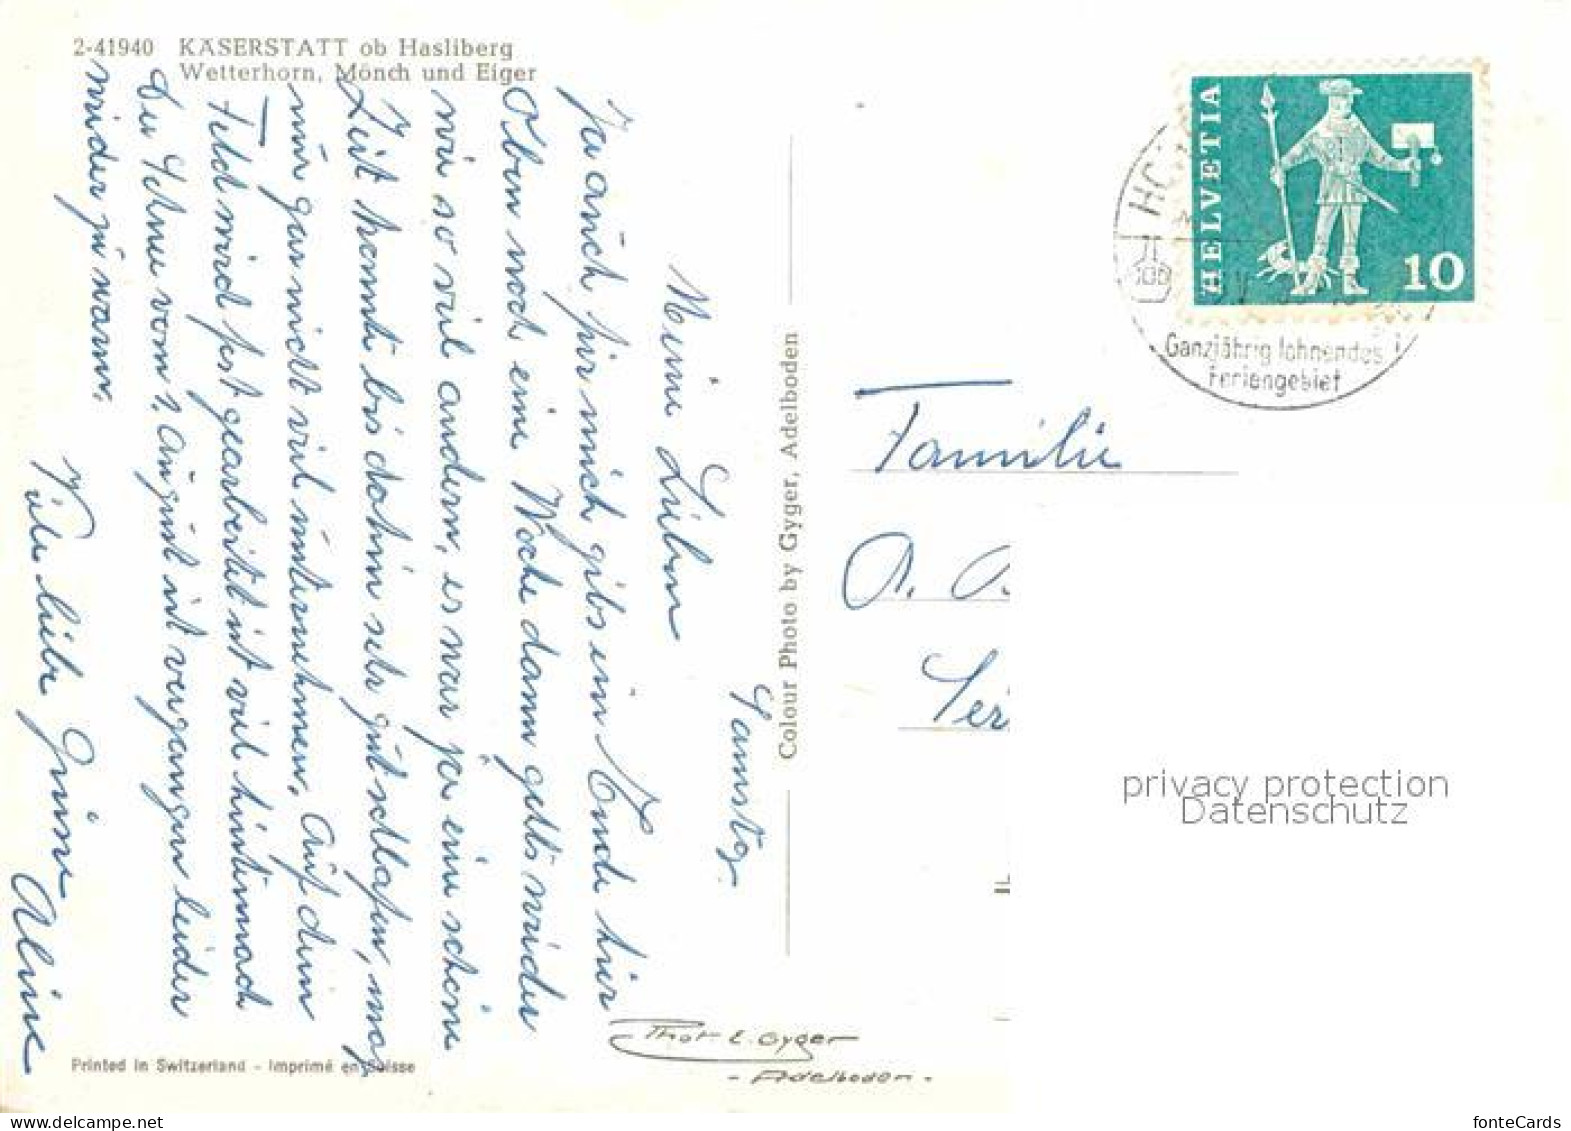 2-41940 KÄSERSTATT ob Hasliberg
Wetterhorn, Mönch und Eiger
Samstg.
Meine Lieben
Ja auch für mich gibs ein Ende hier
Oben noch eine Woche dann gehts wieder
wie so viel andern, es war ja eine schöne
Zeit konnte bis dahin sehr gut schlafen, mag
nur gar nicht viel unternehmen. Auf dem
Feld wird fest gearbeitet ist viel hintennach
Der Schnee vom 1. August ist vergangen leider
wieder zu warm.
Viele liebe Grüsse
Aline
Printed in Switzerland - Imprimé en Suisse
Colour Photo by Gyger, Adelboden
Phot E. Gyger
- Adelboden -
HELVETIA
10
Ganzjährig lohnendes
Feriengebiet
Familie
A.
privacy protection
Datenschutz
fonteCards